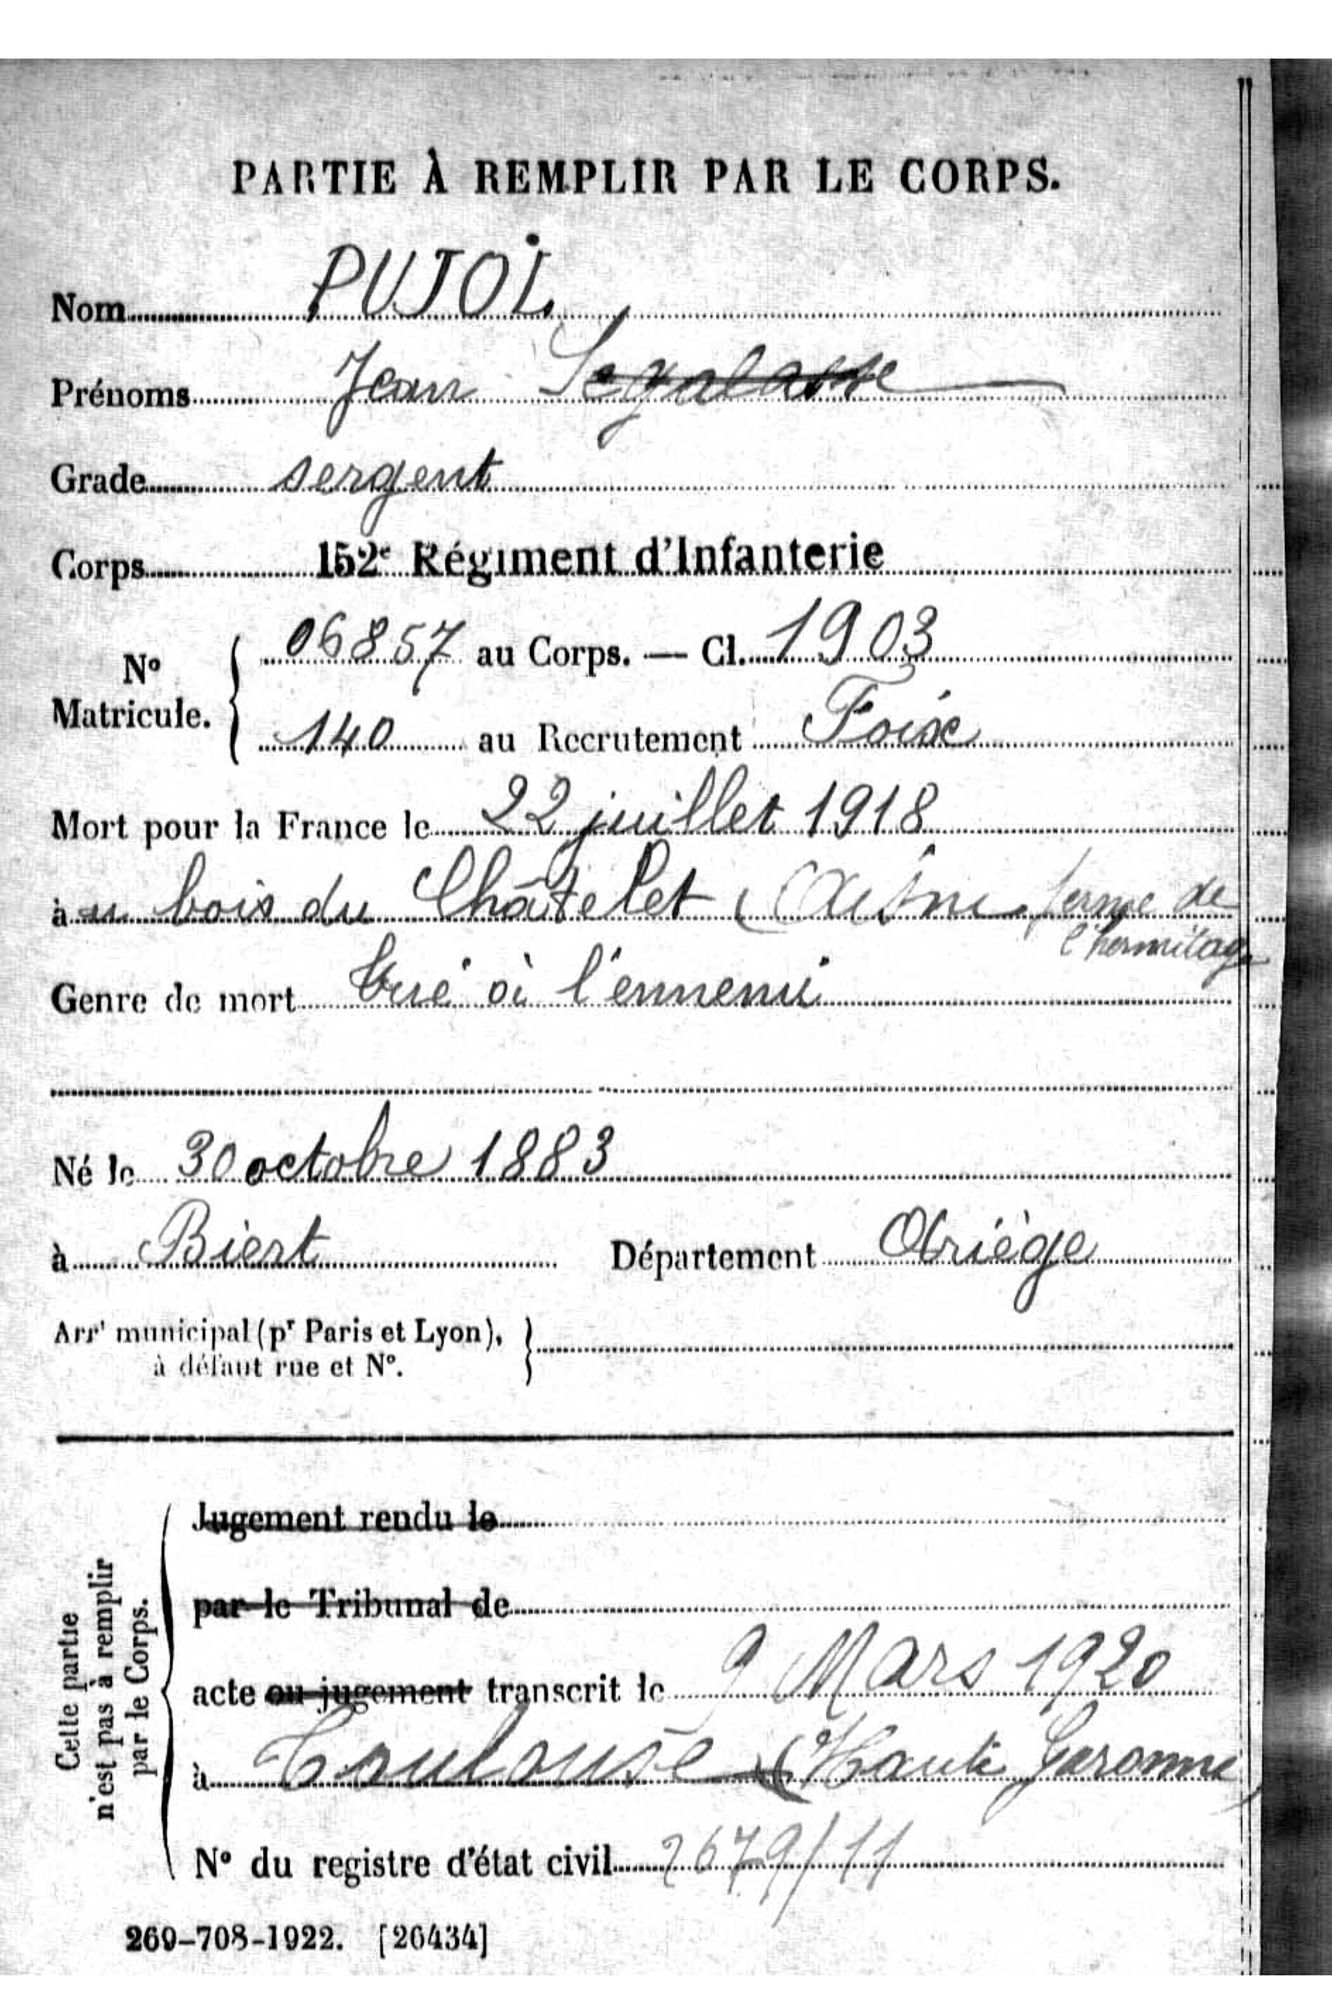 PARTIE À REMPLIR PAR LE CORPS.
Nom PUJOL
Prénoms Jean
Grade sergent
Corps 152e Régiment d'Infanterie
No Matricule. { 06857 au Corps. — Cl. 1903
140 au Recrutement Foix
Mort pour la France le 22 juillet 1918
à au bois du Châtelet (Aisne ferme de
l'hermitage
Genre de mort tué à l'ennemi
Né le 30 octobre 1883
à Biert Département Ariège
Arrt municipal (pr Paris et Lyon), }
à défaut rue et No.
Cette partie
n'est pas à remplir
par le Corps.
Jugement rendu le
par le Tribunal de
acte ou jugement transcrit le 9 Mars 1920
à Toulouse (Haute Garonne)
No du registre d'état civil 2679/11
269-708-1922. [26434]